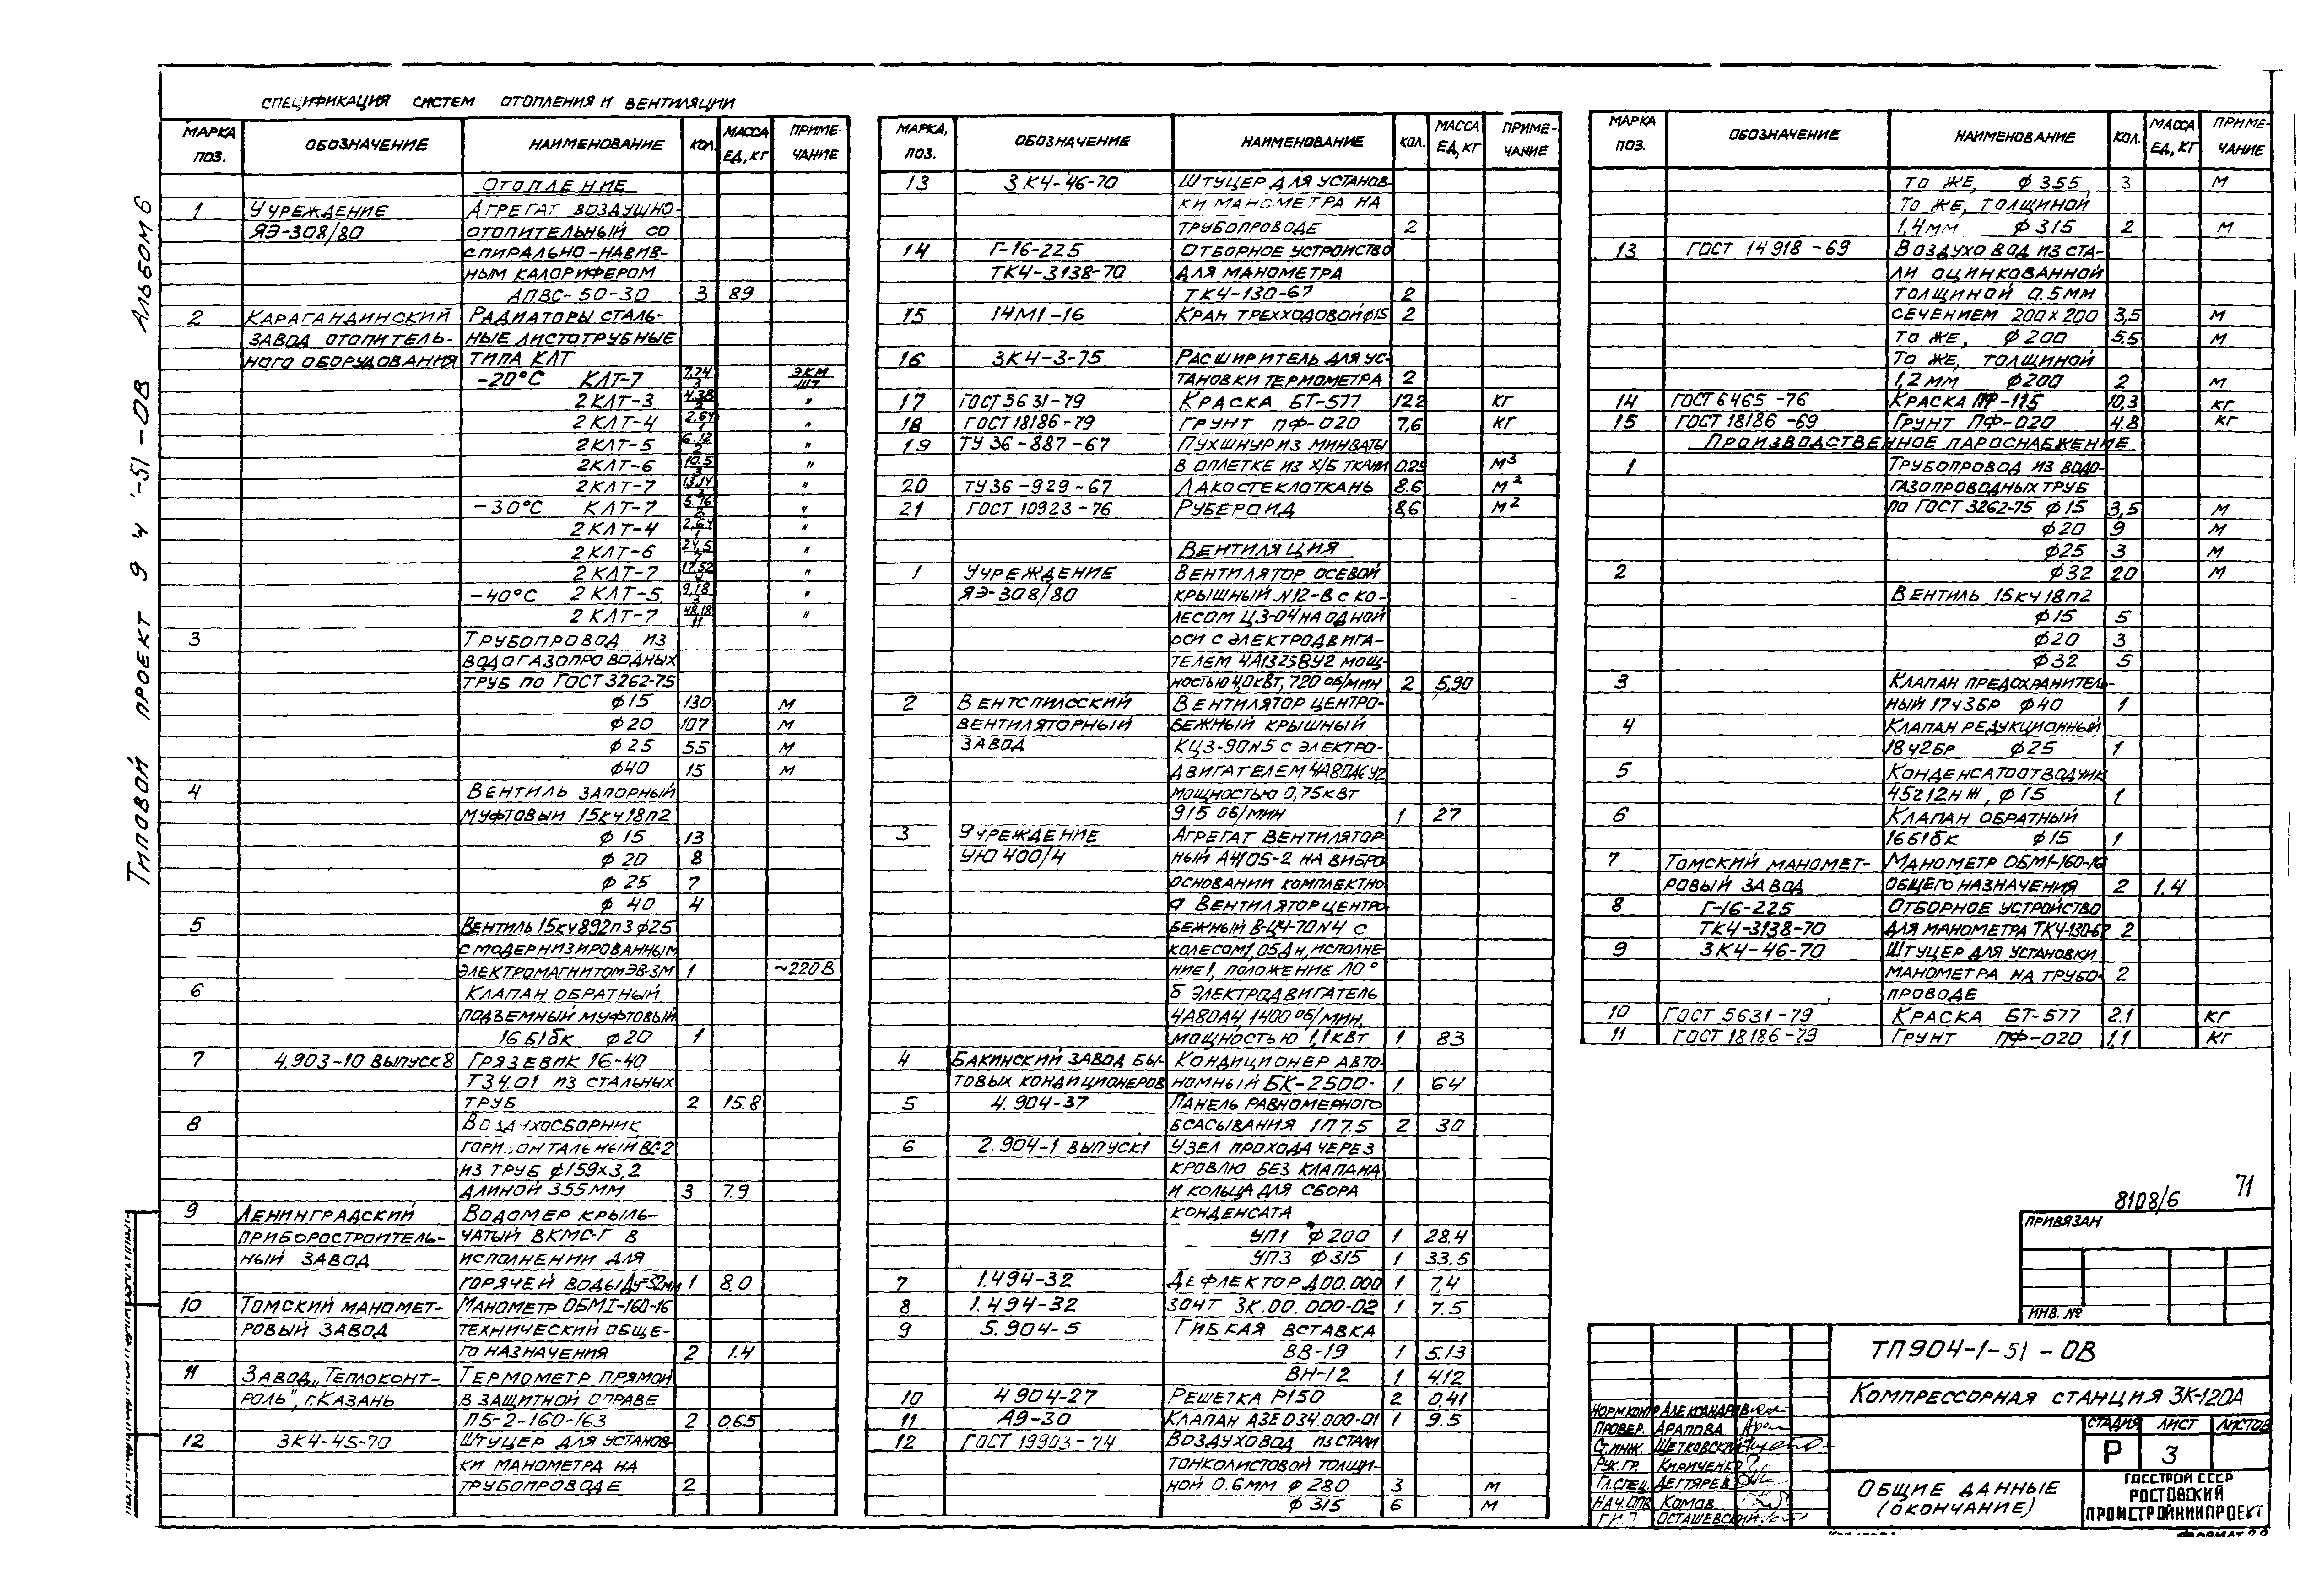 Типовой проект 904-1-51-ОВ Альбом 6
Спецификация систем отопления и вентиляции
Марка поз. Обозначение Наименование Кол. Масса ед, кг Примечание
Отопление
1 Учреждение Агрегат воздушно-
ЯЭ-308/80 отопительный со
спирально-навив-
ным калорифером
АПВС-50-30 3 89
2 Карагандинский Радиаторы сталь-
завод отопитель- ные листотрубные
ного оборудования типа КЛТ
-20°С КЛТ-7 7,24/3 ЭКМ/шт
2КЛТ-3 4,38/2 "
2КЛТ-4 2,64/1 "
2КЛТ-5 6,12/2 "
2КЛТ-6 10,5/3 "
2КЛТ-7 13,14/3 "
-30°С КЛТ-7 5,16/2 "
2КЛТ-4 2,64/1 "
2КЛТ-6 24,5/7 "
2КЛТ-7 17,52/4 "
-40°С 2КЛТ-5 9,18/3 "
2КЛТ-7 48,18/11 "
3 Трубопровод из
водогазопроводных
труб по ГОСТ 3262-75
ф15 130 м
ф20 107 м
ф25 55 м
ф40 15 м
4 Вентиль запорный
муфтовый 15кч18п2
ф15 13
ф20 8
ф25 7
ф40 4
5 Вентиль 15кч892п3 ф25
с модернизированным
электромагнитом ЭВ-3М 1 ~220В
6 Клапан обратный
подъемный муфтовый
16Б1бк ф20 1
7 4.903-10 выпуск 8 Грязевик 16-40
Т34.01 из стальных
труб 2 15.8
8 Воздухосборник
горизонтальный ВС-2
из труб ф159х3,2
длиной 355мм 3 7.9
9 Ленинградский Водомер крыль-
приборостроитель- чатый ВКМС-Г в
ный завод исполнении для
горячей воды Ду=32мм 1 8.0
10 Томский маномет- Манометр ОБМ1-160-16
ровый завод технический обще-
го назначения 2 1.4
11 Завод „Теплоконт- Термометр прямой
роль", г. Казань в защитной оправе
П5-2-160-163 2 0,65
12 ЗК4-45-70 Штуцер для установ-
ки манометра на
трубопроводе 2
Марка, поз. Обозначение Наименование Кол. Масса ед, кг Примечание
13 ЗК4-46-70 Штуцер для установ-
ки манометра на
трубопроводе 2
14 Г-16-225 Отборное устройство
ТК4-3138-70 для манометра
ТК4-130-67 2
15 14М1-16 Кран трехходовой ф15 2
16 ЗК4-3-75 Расширитель для ус-
тановки термометра 2
17 ГОСТ 5631-79 Краска БТ-577 12.2 кг
18 ГОСТ 18186-79 Грунт ПФ-020 7,6 кг
19 ТУ 36-887-67 Пухшнур из минваты
в оплетке из х/б ткани 0.25 м3
20 ТУ 36-929-67 Лакостеклоткань 8.6 м2
21 ГОСТ 10923-76 Рубероид 8,6 м2
Вентиляция
1 Учреждение Вентилятор осевой
ЯЭ-308/80 крышный N12-В с ко-
лесом Ц3-04 на одной
оси с электродвига-
телем 4А132S8У2 мощ-
ностью 4,0кВт, 720 об/мин 2 5,90
2 Вентспилсский Вентилятор центро-
вентиляторный бежный крышный
завод КЦ3-90N5 с электро-
двигателем 4А80А6У2
мощностью 0,75кВт
915 об/мин 1 27
3 Учреждение Агрегат вентилятор-
УЮ 400/4 ный А4105-2 на вибро
основании комплектно
а Вентилятор центро-
бежный В-Ц4-70N4 с
колесом 1,05Дн, исполне-
ние 1, положение Л0°
б Электродвигатель
4А80А4 1400 об/мин,
мощностью 1,1кВт 1 83
4 Бакинский завод бы- Кондиционер авто-
товых кондиционеров номный БК-2500- 1 64
5 4.904-37 Панель равномерного
всасывания 1П7.5 2 30
6 2.904-1 выпуск 1 Узел прохода через
кровлю без клапана
и кольца для сбора
конденсата
УП1 ф200 1 28.4
УП3 ф315 1 33.5
7 1.494-32 Дефлектор Д00.000 1 7,4
8 1.494-32 Зонт ЗК.00.000-02 1 7.5
9 5.904-5 Гибкая вставка
ВВ-19 1 5.13
ВН-12 1 4.12
10 4 904-27 Решетка Р150 2 0.41
11 А9-30 Клапан АЗЕ034.000-01 1 9.5
12 ГОСТ 19903-74 Воздуховод из стали
тонколистовой толщи-
ной 0.6мм ф280 3 м
ф315 6 м
Марка поз. Обозначение Наименование Кол. Масса ед, кг Примечание
То же, ф355 3 м
То же, толщиной
1,4мм ф315 2 м
13 ГОСТ 14918-69 Воздуховод из ста-
ли оцинкованной
толщиной 0.5мм
сечением 200х200 3,5 м
То же, ф200 5.5 м
То же, толщиной
1,2мм ф200 2 м
14 ГОСТ 6465-76 Краска ПФ-115 10,3 кг
15 ГОСТ 18186-69 Грунт ПФ-020 4.8 кг
Производственное пароснабжение
1 Трубопровод из водо-
газопроводных труб
по ГОСТ 3262-75 ф15 3,5 м
ф20 9 м
ф25 3 м
2 ф32 20 м
Вентиль 15кч18п2
ф15 5
ф20 3
ф32 5
3 Клапан предохранитель-
ный 17ч3бр ф40 1
4 Клапан редукционный
18ч2бр ф25 1
5 Конденсатоотводчик
45г12нж, ф15 1
6 Клапан обратный
16Б1бк ф15 1
7 Томский маномет- Манометр ОБМ1-160-16
ровый завод общего назначения 2 1.4
8 Г-16-225 Отборное устройство
ТК4-3138-70 для манометра ТК4-130-67 2
9 ЗК4-46-70 Штуцер для установки
манометра на трубо- 2
проводе
10 ГОСТ 5631-79 Краска БТ-577 2.1 кг
11 ГОСТ 18186-79 Грунт ПФ-020 1,1 кг
8108/6 71
Привязан
Инв. №
ТП904-1-51-ОВ
Компрессорная станция ЗК-120А
Норм.контр Александров
Провер. Арапова
Ст.инж. Щетковский
Рук.гр. Кириченко
Гл.спец. Дегтярев
Нач.отв Комов
Осташевский
Стадия Лист Листов
Р 3
Общие данные
(окончание)
Госстрой СССР
Ростовский
Промстройниипроект
Формат 22